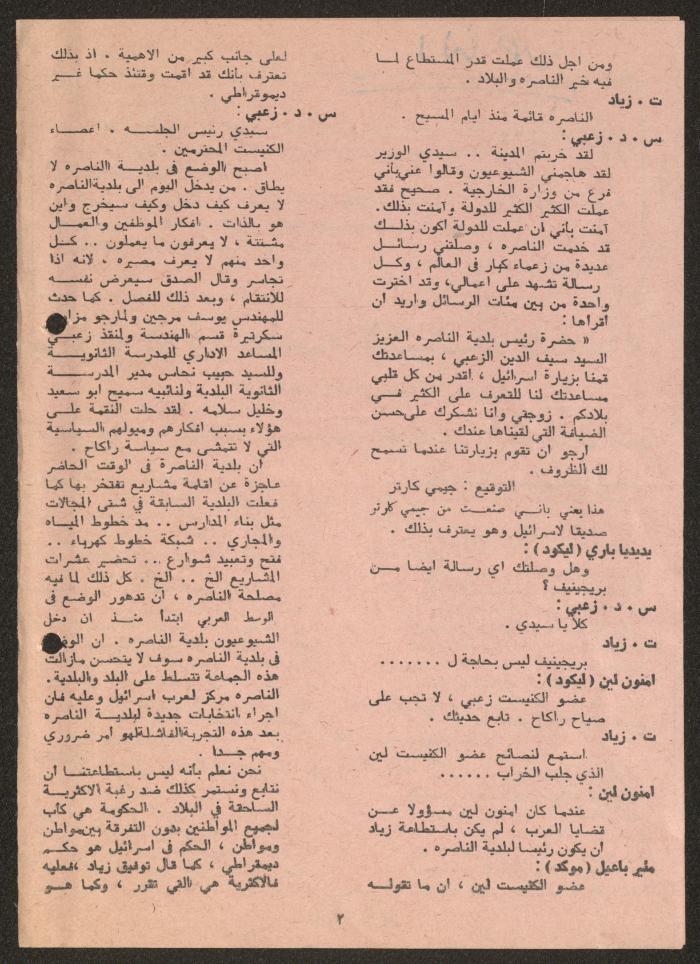 ومن اجل ذلك عملت قدر المستطاع لما
فيه خير الناصره والبلاد .
ت . زياد
الناصره قائمة منذ ايام المسيح .
س . د . زعبي :
لقد خربتم المدينة .. سيدي الوزير
لقد هاجمني الشيوعيون وقالوا عني بأني
فرع من وزارة الخارجية . صحيح فقد
عملت الكثير الكثير للدولة وآمنت بذلك.
آمنت بأني ان عملت للدولة اكون بذلك
قد خدمت الناصره ، وصلتني رسائل
عديدة من زعماء كبار في العالم ، وكل
رسالة تشهد على اعمالي، وقد اخترت
واحدة من بين مئات الرسائل واريد ان
اقرأها :
« حضرة رئيس بلدية الناصره العزيز
السيد سيف الدين الزعبي ، بمساعدتك
قمنا بزيارة اسرائيل ، اقدر من كل قلبي
مساعدتك لنا للتعرف على الكثير في
بلادكم . زوجتي وانا نشكرك على حسن
الضيافة التي لقيناها عندك .
ارجو ان تقوم بزيارتنا عندما تسمح
لك الظروف .
التوقيع : جيمي كارتر
هذا يعني باني صنعت من جيمي كارتر
صديقا لاسرائيل وهو يعترف بذلك .
يديديا باري ( ليكود ) :
وهل وصلتك اي رسالة ايضا من
بريجينيف ؟
س . د . زعبي :
كلا يا سيدي .
ت . زياد
بريجينيف ليس بحاجة ل .......
امنون لين ( ليكود ) :
عضو الكنيست زعبي ، لا تجب على
صياح راكاح . تابع حديثك .
ت . زياد
استمع لنصائح عضو الكنيست لين
الذي جلب الخراب ......
امنون لين :
عندما كان امنون لين مسؤولا عن
قضايا العرب ، لم يكن باستطاعة زياد
ان يكون رئيسا لبلدية الناصره .
مئير باعيل ( موكد ) :
عضو الكنيست لين ، ان ما تقوله
لعلى جانب كبير من الاهمية . اذ بذلك
تعترف بأنك قد اقمت وقتئذ حكما غير
ديموقراطي .
س . د . زعبي :
سيدي رئيس الجلسه . اعضاء
الكنيست المحترمين .
اصبح الوضع في بلدية الناصره لا
يطاق . من يدخل اليوم الى بلدية الناصره
لا يعرف كيف دخل وكيف سيخرج واين
هو بالذات . افكار الموظفين والعمال
مشتتة ، لا يعرفون ما يعملون .. كل
واحد منهم لا يعرف مصيره ، لانه اذا
تجاسر وقال الصدق سيعرض نفسه
للانتقام ، وبعد ذلك للفصل . كما حدث
للمهندس يوسف مرجين ولمارجو
سكرتيرة قسم الهندسة ولمنقذ زعبي
المساعد الاداري للمدرسة الثانوية
وللسيد حبيب نحاس مدير المدرسة
الثانوية البلدية ولنائبيه سميح ابو سعيد
وخليل سلامه . لقد حلت النقمة على
هؤلاء بسبب افكارهم وميولهم السياسية
التي لا تتمشى مع سياسة راكاح .
ان بلدية الناصرة في الوقت الحاضر
عاجزة عن اقامة مشاريع تفتخر بها كما
فعلت البلدية السابقة في شتى المجالات
مثل بناء المدارس .. مد خطوط المياه
والمجاري .. شبكة خطوط كهرباء ..
فتح وتعبيد شوارع .. تحضير عشرات
المشاريع الخ .. الخ . كل ذلك لما فيه
مصلحة الناصره ، ان تدهور الوضع في
الوسط العربي ابتدأ منذ ان دخل
الشيوعيون بلدية الناصره . ان الوضع
في بلدية الناصره سوف لا يتحسن مازالت
هذه الجماعة تتسلط على البلد والبلدية.
الناصره مركز لعرب اسرائيل وعليه فان
اجراء انتخابات جديدة لبلدية الناصره
بعد هذه التجربة الفاشلة لهو امر ضروري
ومهم جدا .
نحن نعلم بأنه ليس باستطاعتنا ان
نتابع ونستمر كذلك ضد رغبة الاكثرية
الساحقة في البلاد . الحكومة هي كأب
لجميع المواطنين بدون التفرقة بين مواطن
ومواطن ، الحكم في اسرائيل هو حكم
ديمقراطي ، كما قال توفيق زياد ،فعليه
فالاكثرية هي التي تقرر ، وكما هو
٢